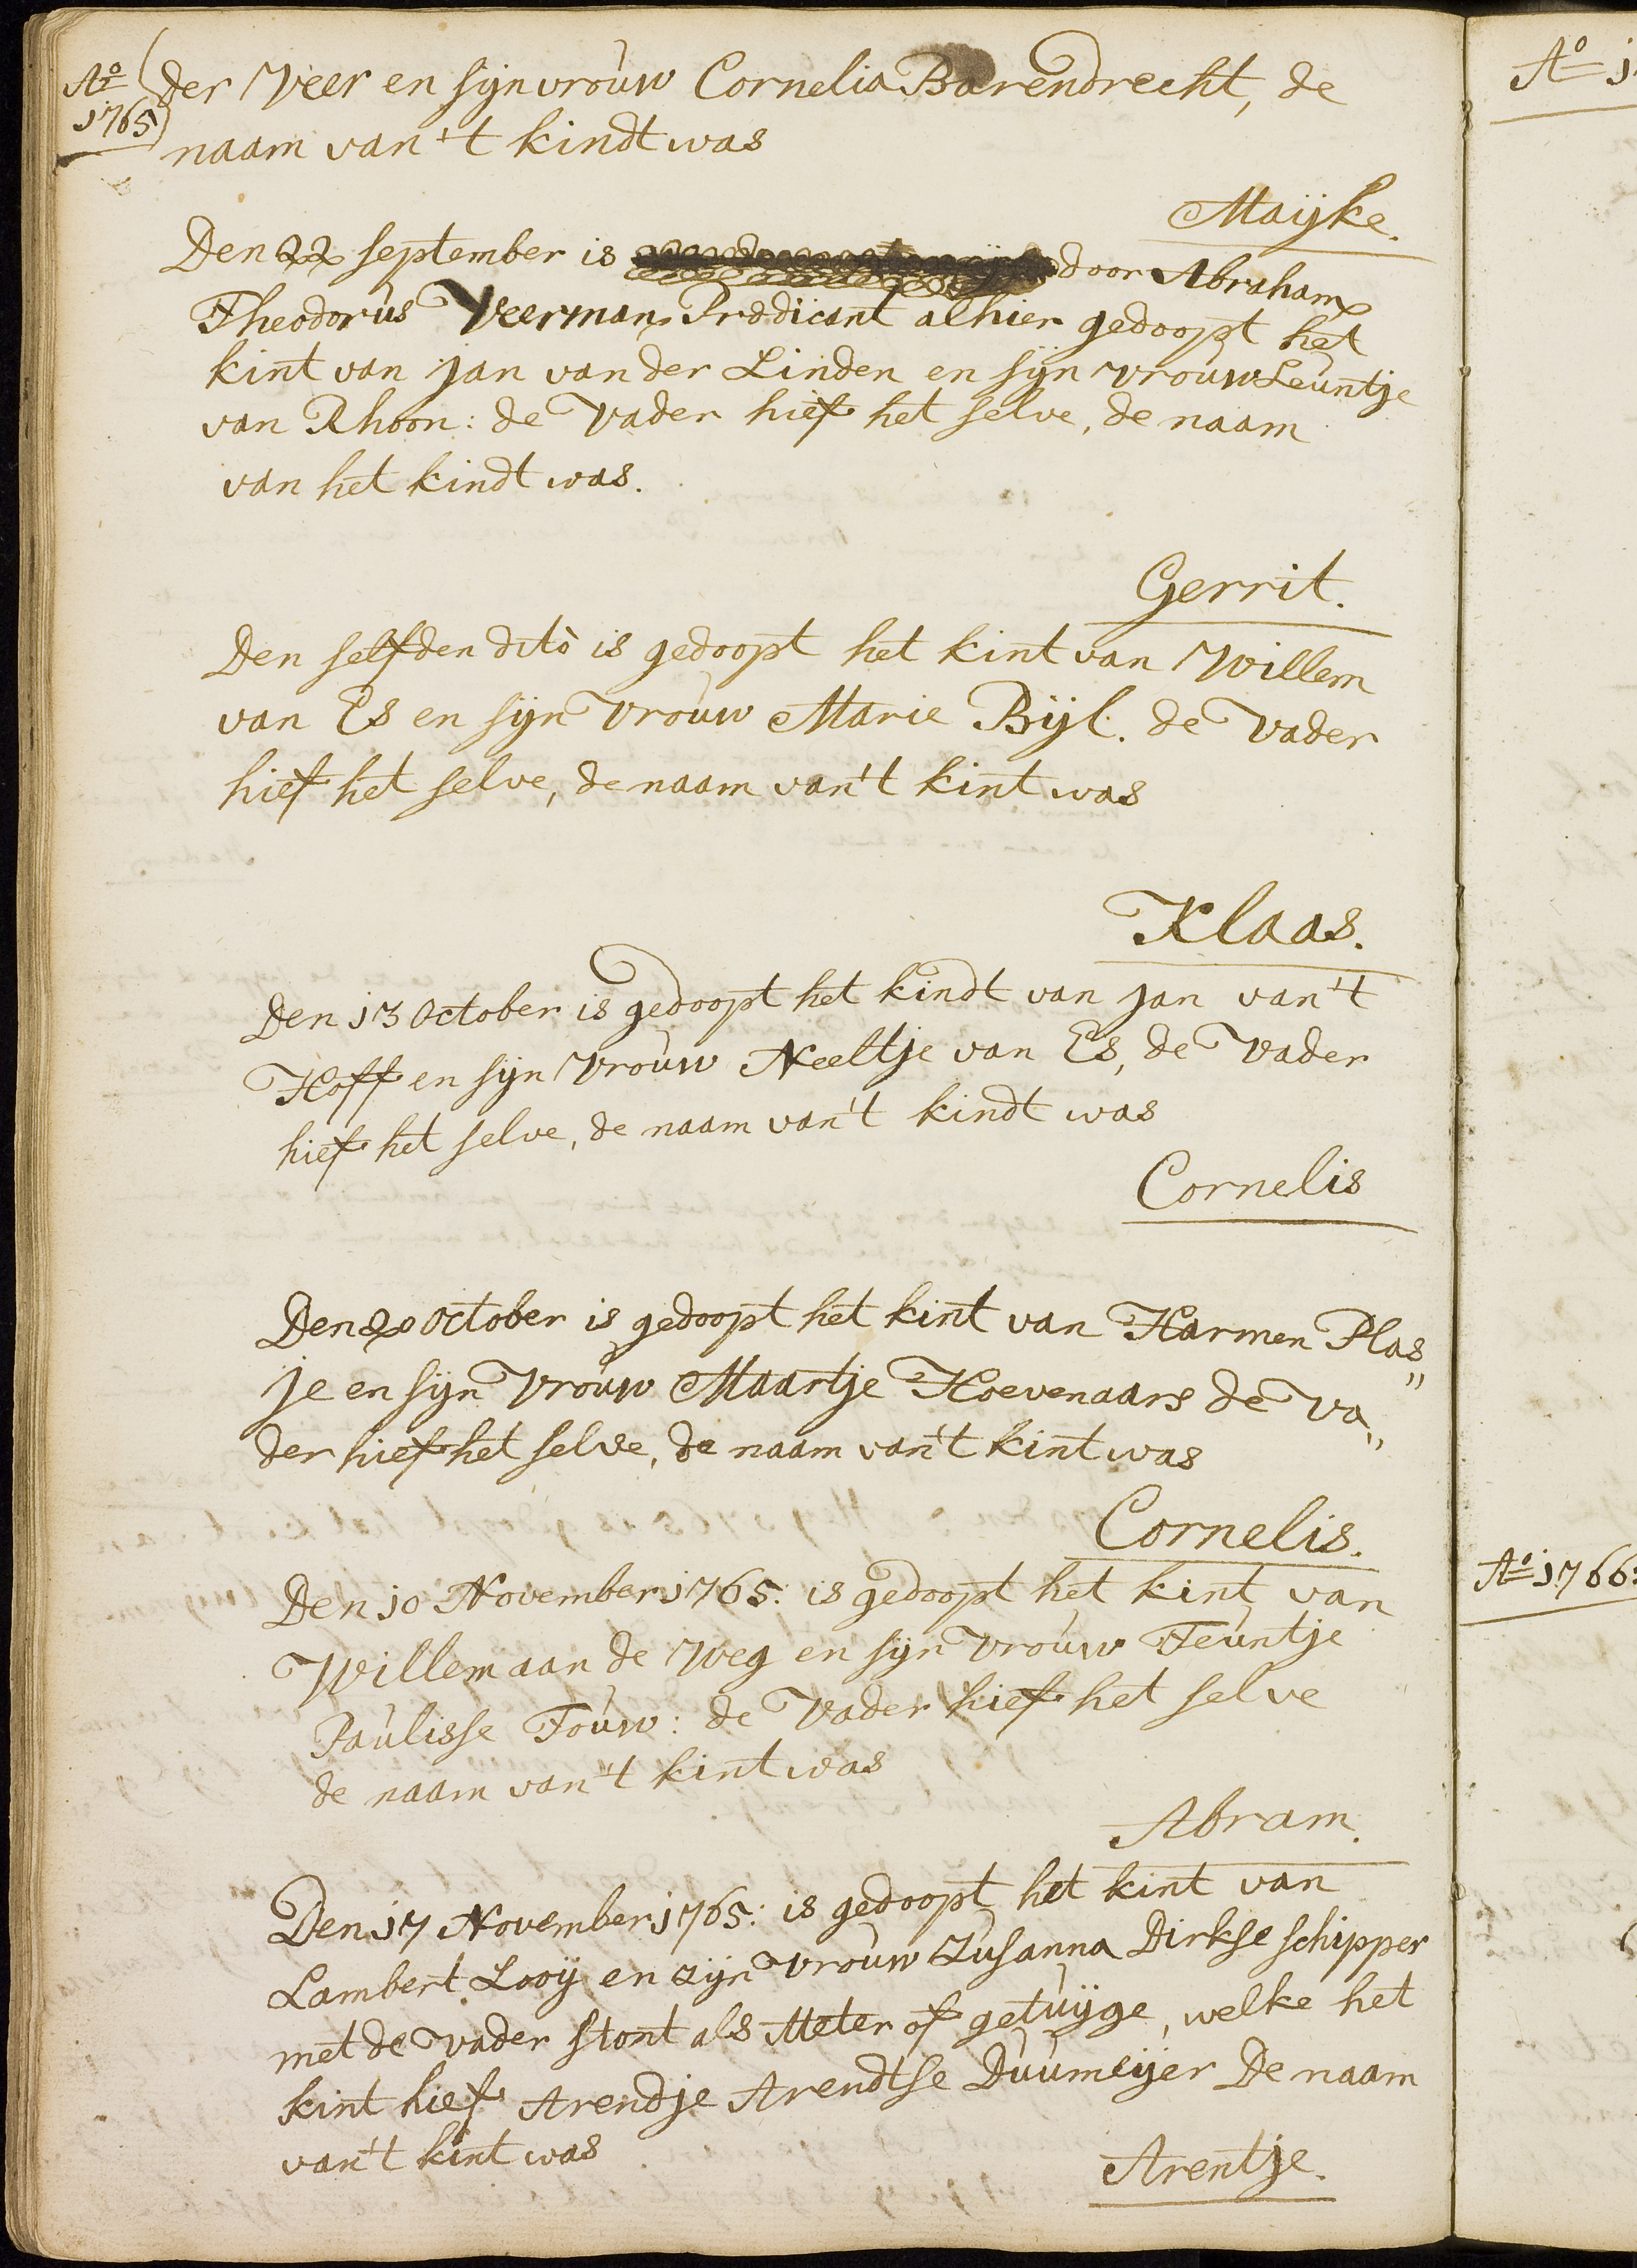 Ao 1765
der Veer en sijn vrouw Cornelia Barendrecht, de
naam van 't kindt was
Maijke.
Den 22 september is door Abraham
Theodorus Veerman Predicant alhier gedoopt het
kint van Jan van der Linden en sijn vrouw Leuntje
van Rhoon: de Vader hief het selve, de naam
van het kindt was.
Gerrit.
Den selfden dito is gedoopt het kint van Willem
van Es en sijn vrouw Marie Bijl. de Vader
hief het selve, de naam van't kint was
Klaas.
Den 13 October is gedoopt het kindt van Jan van't
Hoff en sijn Vrouw Neeltje van Es, de Vader
hief het selve, de naam van't kindt was
Cornelis
Den 20 October is gedoopt het kint van Harmen Plas„
je en sijn Vrouw Maartje Hoevenaars de Va„
der hief het selve, de naam van't kint was
Cornelis.
Den 10 November 1765: is gedoopt het kint van
Willem aan de Weg en sijn vrouw Teuntje
Paulisse Touw: de Vader hief het selve
de naam van't kint was
Abram.
Den 17 November 1765: is gedoopt het kint van
Lambert Looij en zijn vrouw Zusanna Dirkse schipper
met de Vader stont als Meter of getuijge, welke het
kint hief Arendje Arendtse Duumeijer De naam
van't kint was
Arentje.
Ao 1766: